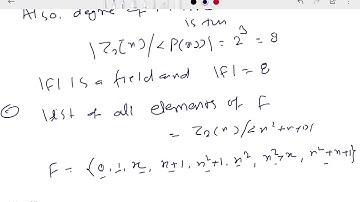 Also, degree of
is three
|Z₂(x)/<P(x)>| = 2³ = 8
|F| is a field and |F| = 8
list of all elements of F
= Z₂(x)/<x²+x+1>
F = {0, 1, x, x+1, x²+1, x², x²+x, x²+x+1}